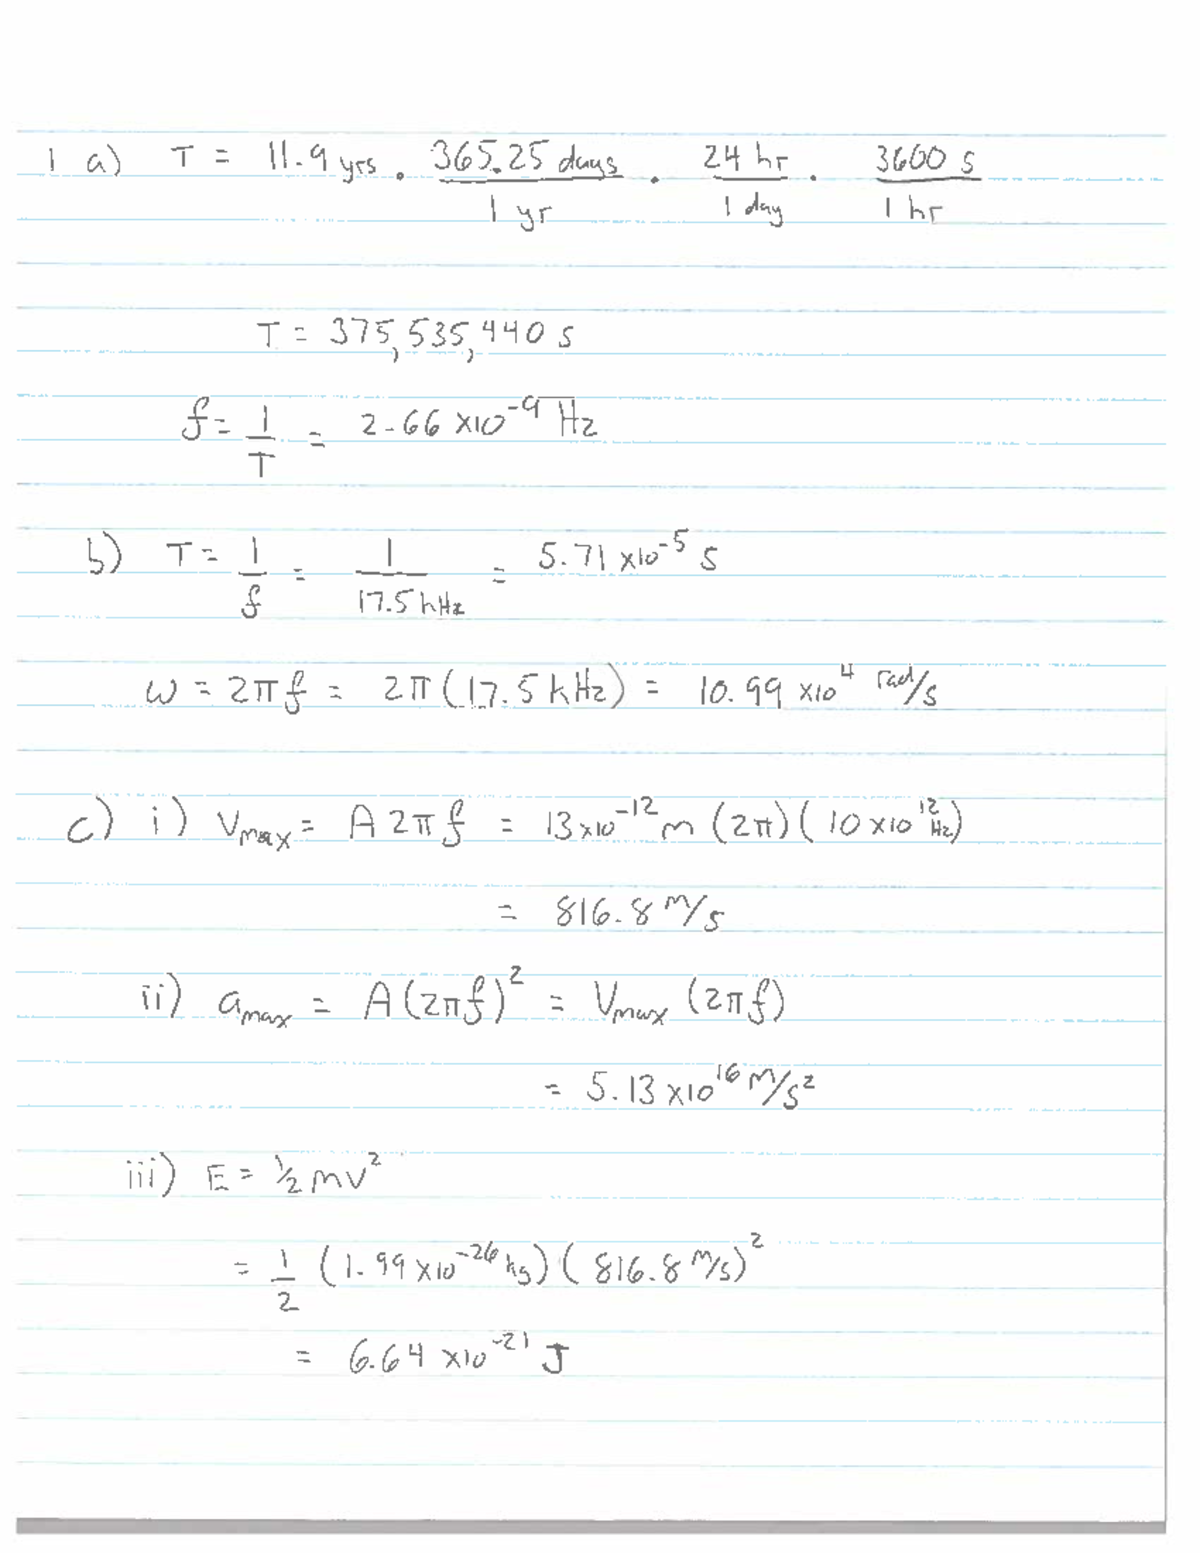 1 a) T = 11.9 yrs . 365.25 days / 1 yr . 24 hr / 1 day . 3600 s / 1 hr
T = 375,535,440 s
f = 1/T = 2.66 x10^-9 Hz
b) T = 1/f = 1/17.5 kHz = 5.71 x10^-5 s
ω = 2πf = 2π(17.5 kHz) = 10.99 x10^4 rad/s
c) i) Vmax = A2πf = 13x10^-12 m (2π)(10x10^12 Hz)
= 816.8 m/s
ii) amax = A(2πf)^2 = Vmax (2πf)
= 5.13 x10^16 m/s^2
iii) E = 1/2 mv^2
= 1/2 (1.99 x10^-26 kg)(816.8 m/s)^2
= 6.64 x10^-21 J